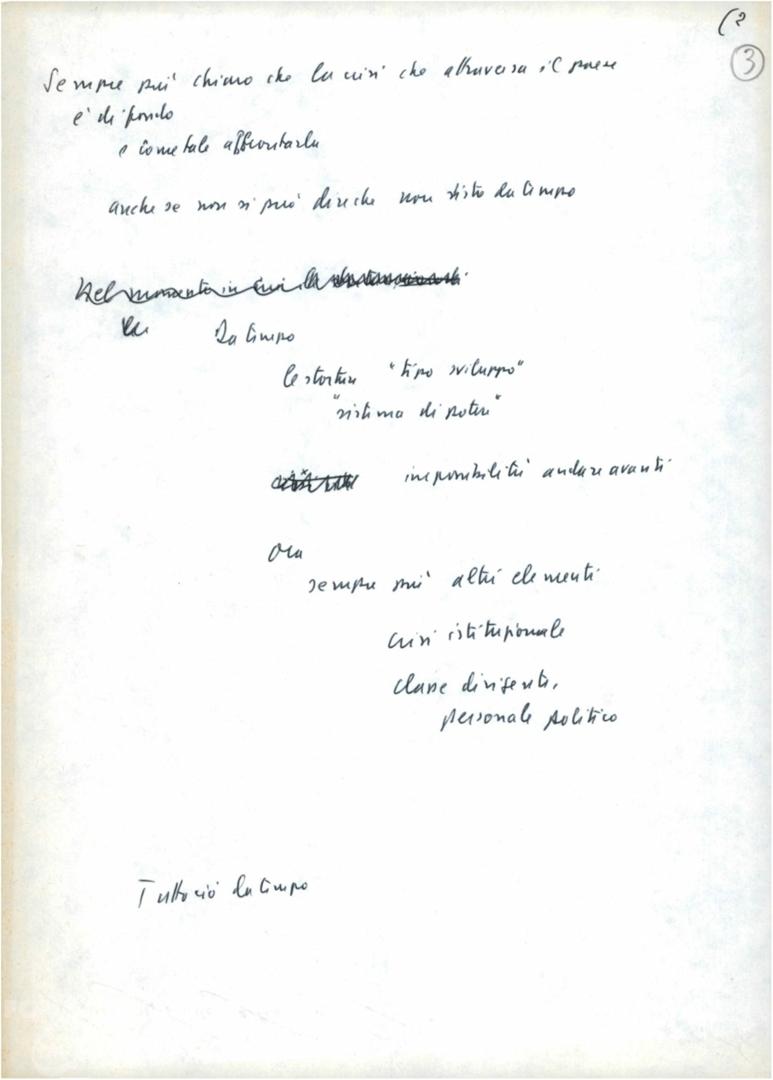 (2
3
Sempre più chiaro che la crisi che attraversa il paese
e' di fondo
e come tale affrontarla
anche se non si può dire che non visto da tempo
Nel momento in cui la
Da tempo
le storture "tipo sviluppo"
"sistema di potere"
impossibilità andare avanti
Ora
sempre più altri elementi
crisi istituzionale
classe dirigente,
personale politico
Tutto ciò da tempo